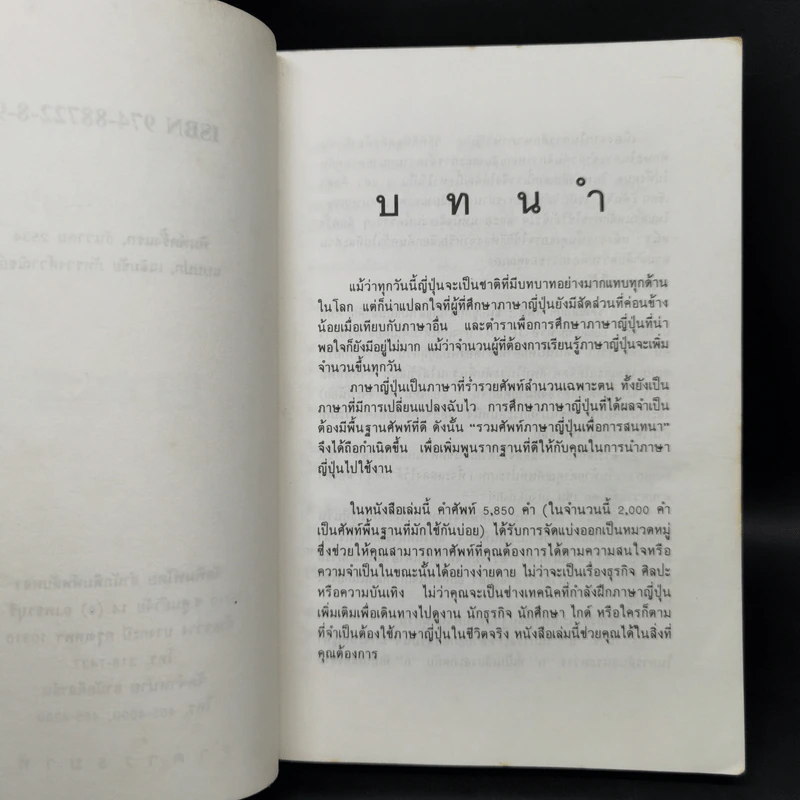 บทนำ
แม้ว่าทุกวันนี้ญี่ปุ่นจะเป็นชาติที่มีบทบาทอย่างมากแทบทุกด้าน
ในโลก แต่ก็น่าแปลกใจที่ผู้ที่ศึกษาภาษาญี่ปุ่นยังมีสัดส่วนที่ค่อนข้าง
น้อยเมื่อเทียบกับภาษาอื่น และตำราเพื่อการศึกษาภาษาญี่ปุ่นที่น่า
พอใจก็ยังมีอยู่ไม่มาก แม้ว่าจำนวนผู้ที่ต้องการเรียนรู้ภาษาญี่ปุ่นจะเพิ่ม
จำนวนขึ้นทุกวัน
ภาษาญี่ปุ่นเป็นภาษาที่ร่ำรวยศัพท์สำนวนเฉพาะตน ทั้งยังเป็น
ภาษาที่มีการเปลี่ยนแปลงฉับไว การศึกษาภาษาญี่ปุ่นที่ได้ผลจำเป็น
ต้องมีพื้นฐานศัพท์ที่ดี ดังนั้น “รวมศัพท์ภาษาญี่ปุ่นเพื่อการสนทนา”
จึงได้ถือกำเนิดขึ้น เพื่อเพิ่มพูนรากฐานที่ดีให้กับคุณในการนำภาษา
ญี่ปุ่นไปใช้งาน
ในหนังสือเล่มนี้ คำศัพท์ 5,850 คำ (ในจำนวนนี้ 2,000 คำ
เป็นศัพท์พื้นฐานที่มักใช้กันบ่อย) ได้รับการจัดแบ่งออกเป็นหมวดหมู่
ซึ่งช่วยให้คุณสามารถหาศัพท์ที่คุณต้องการได้ตามความสนใจหรือ
ความจำเป็นในขณะนั้นได้อย่างง่ายดาย ไม่ว่าจะเป็นเรื่องธุรกิจ ศิลปะ
หรือความบันเทิง ไม่ว่าคุณจะเป็นช่างเทคนิคที่กำลังฝึกภาษาญี่ปุ่น
เพิ่มเติมเพื่อเดินทางไปดูงาน นักธุรกิจ นักศึกษา ไกด์ หรือใครก็ตาม
ที่จำเป็นต้องใช้ภาษาญี่ปุ่นในชีวิตจริง หนังสือเล่มนี้ช่วยคุณได้ในสิ่งที่
คุณต้องการ